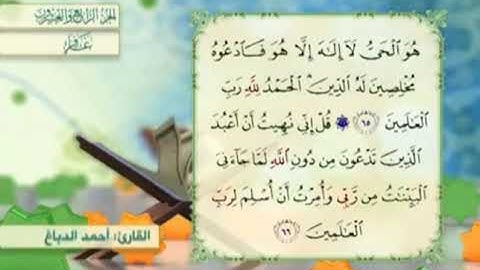 الجزء الرابع والعشرون
غافر
هُوَ ٱلْحَىُّ لَآ إِلَٰهَ إِلَّا هُوَ فَٱدْعُوهُ
مُخْلِصِينَ لَهُ ٱلدِّينَ ۗ ٱلْحَمْدُ لِلَّهِ رَبِّ
ٱلْعَٰلَمِينَ ٦٥ ۞ قُلْ إِنِّى نُهِيتُ أَنْ أَعْبُدَ
ٱلَّذِينَ تَدْعُونَ مِن دُونِ ٱللَّهِ لَمَّا جَآءَنِىَ
ٱلْبَيِّنَٰتُ مِن رَّبِّى وَأُمِرْتُ أَنْ أُسْلِمَ لِرَبِّ
ٱلْعَٰلَمِينَ ٦٦
القارئ: أحمد الدباغ